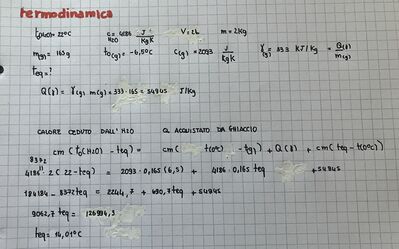 termodinamica
t0(H2O)= 22°C c H2O = 4186 J/kgK V=2L m=2kg
m(g)= 165g t0(g)= -6,50°C c(g)=2093 J/kgK γ(g)= 333 KJ/Kg = Q(γ)/m(g)
teq=?
Q(γ)= γ(g) m(g)=333·165=54945 J/Kg
CALORE CEDUTO DALL'H2O Q ACQUISTATO DA GHIACCIO
cm(t0(H2O) -teq)= cm( t(0°C) -tg) + Q(γ) + cm(teq-t(0°C))
8372
4186·2(22-teq) = 2093·0,165(6,5) + 4186·0,165 teq +54945
184184 - 8372teq = 2244,7 + 690,7teq + 54945
9062,7 teq = 126994,3
teq= 14,01°C